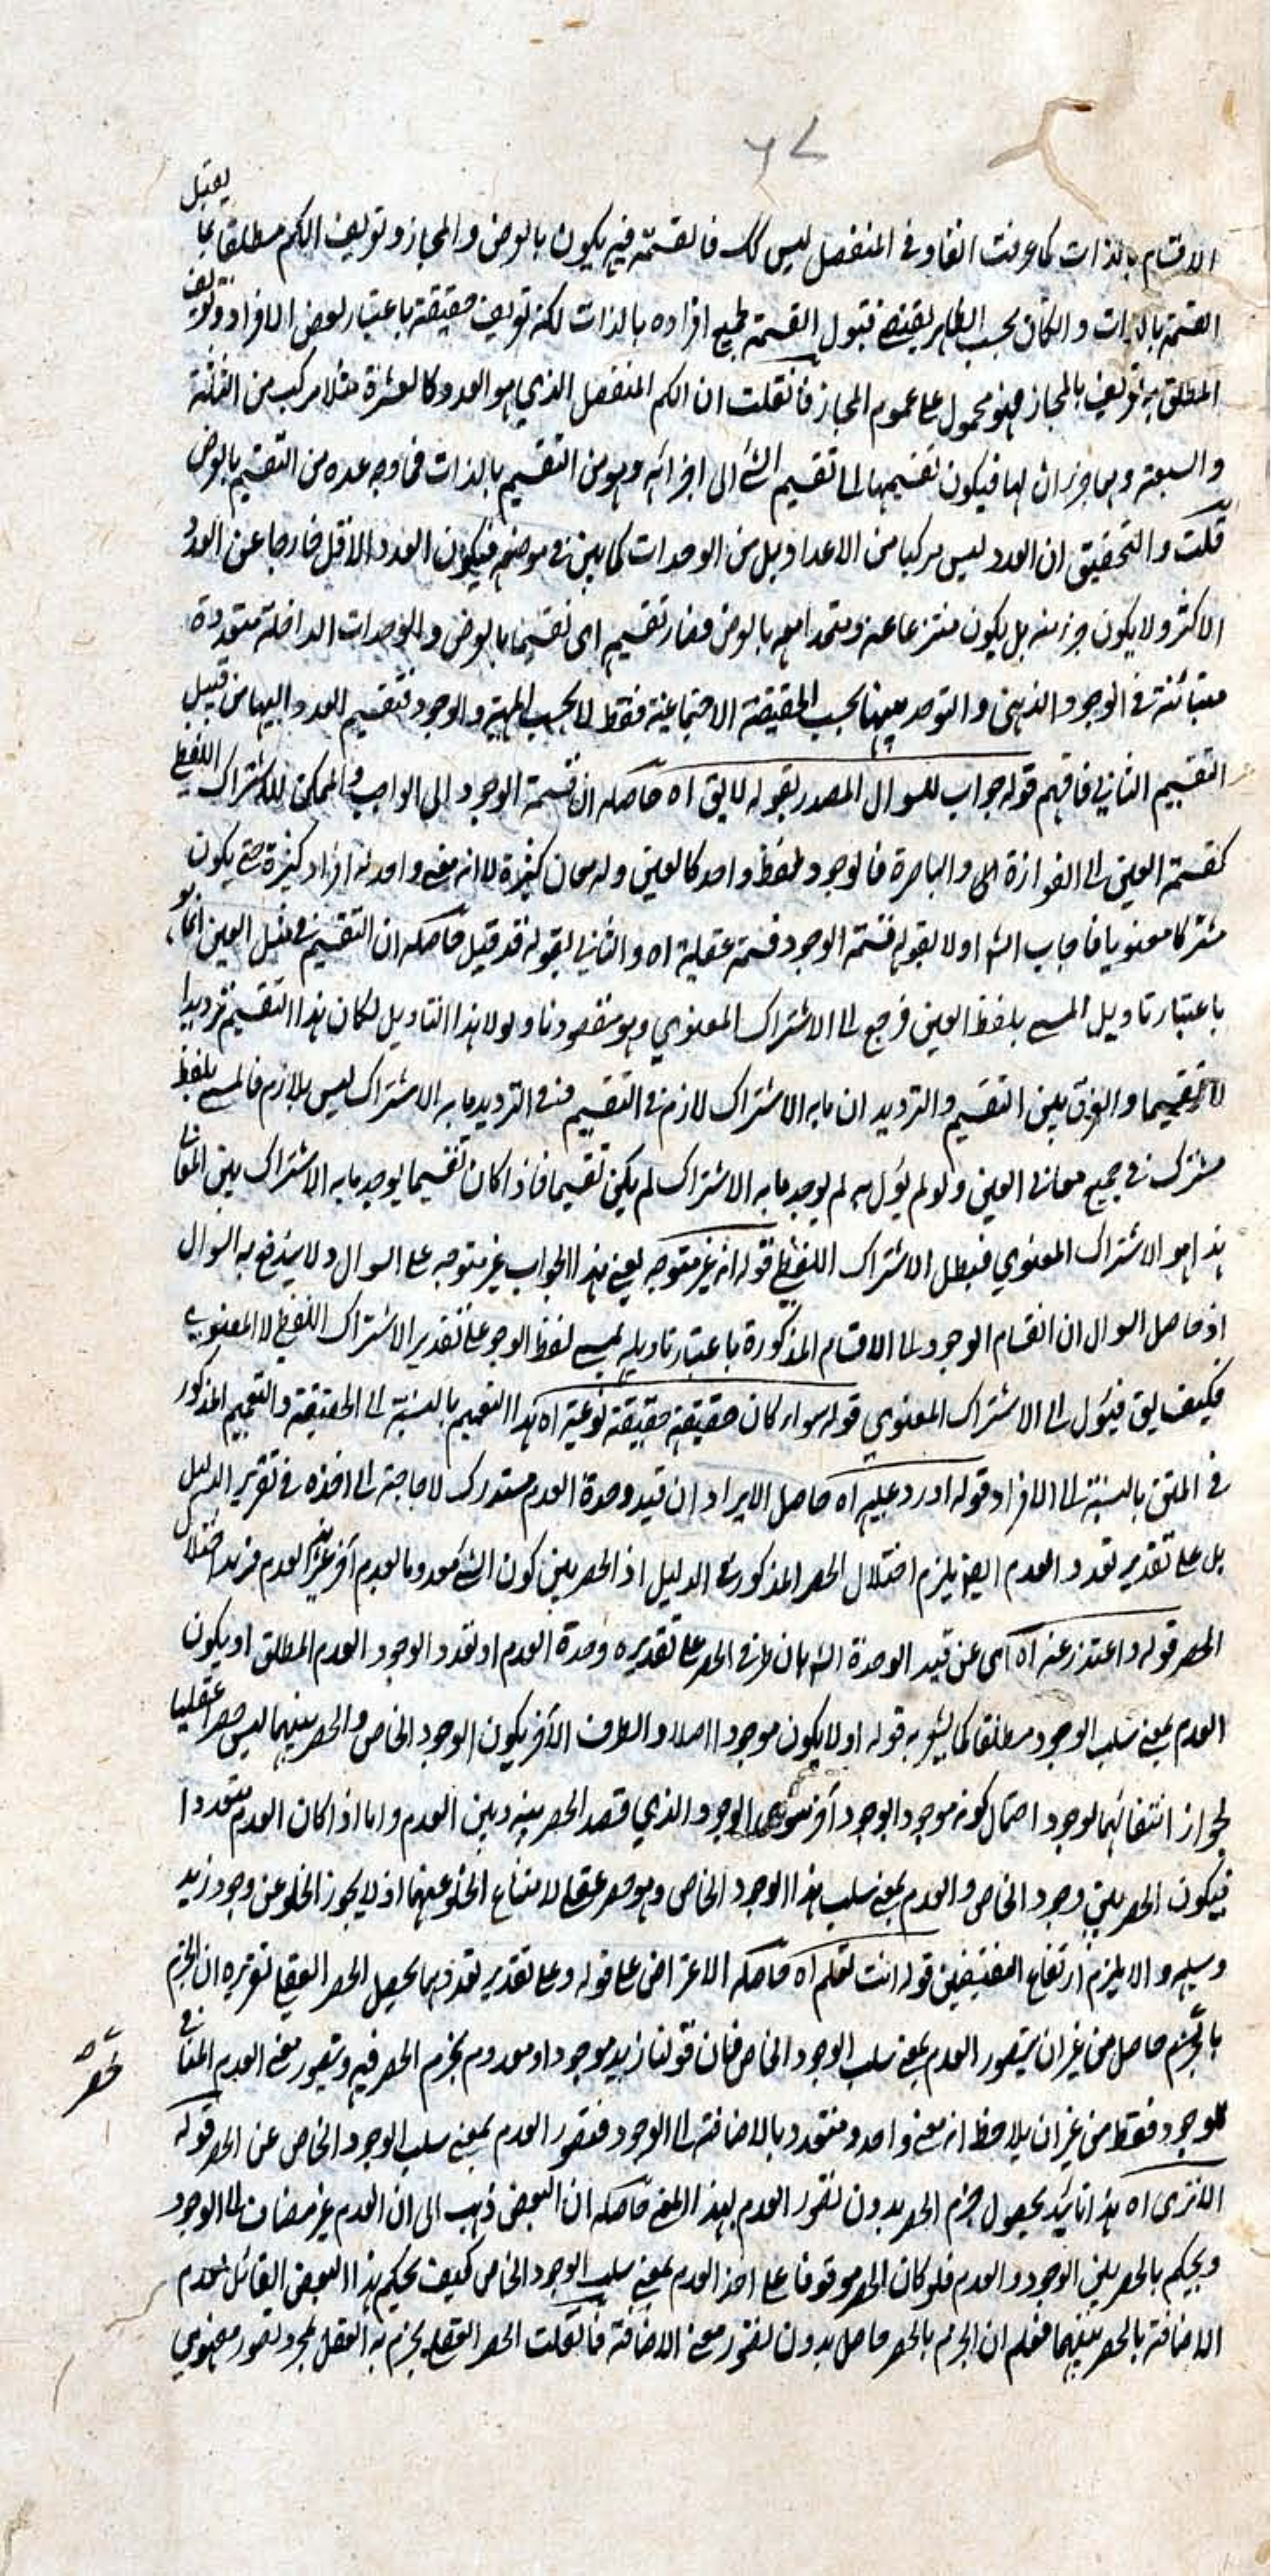 ٦٧
الاقسام بالذات كما عرفت انفا وفي المنفصل ليس كك فالقسمة فيه يكون بالعرض والمجاز وتعريف الكم مطلقا بما يقبل
القسمة بالذات وان كان بحسب الظاهر يقتضي قبول القسمة لجميع افراده بالذات لكنه تعريف حقيقة باعتبار بعض الافراد وتعريف
المطلق به تعريف بالمجاز فهو محمول على عموم المجاز فان قلت ان الكم المنفصل الذي هو العدد كالعشرة مثلا مركب من الثلثة
والسبعة وهما جزءان لها فيكون تقسيمها الى تقسيم الشئ الى اجزائه وهو من التقسيم بالذات فما وجه عده من التقسيم بالعرض
قلت والتحقيق ان العدد ليس مركبا من الاعداد بل من الوحدات كما بين في موضعه فيكون العدد الاقل خارجا عن العدد
الاكثر ولا يكون جزء منه بل يكون منتزعا عنه ومتحدا معه بالعرض فصار تقسيمه اى تقسيما بالعرض والوحدات الداخلة متعددة
متبائنة في الوجود الذهني والتوحد بينها بحسب الحقيقة الاجتماعية فقط لا بحسب المهية والوجود فتقسيم العدد اليها من قبيل
التقسيم الثاني فافهم قوله جواب للسوال المصدر بقوله لا يق اه حاصله ان قسمة الوجود الى الواجب والممكن للاشتراك اللفظي
كقسمة العين الى الفوارة والباصرة فالوجود لفظ واحد كالعين وله معان كثيرة لا انه معنى واحد له افراد كثيرة حتى يكون
مشتركا معنويا فاجاب الش اولا بقوله قسمة الوجود قسمة عقلية اه والثاني بقوله قد قيل حاصله ان التقسيم في مثل العين انما هو
باعتبار تاويل المسمى بلفظ العين فرجع الى الاشتراك المعنوي وهو مقصودنا ولولا هذا التاويل لكان هذا التقسيم ترديدا
لا تقسيما والفرق بين التقسيم والترديد ان ما به الاشتراك لازم في التقسيم ففي الترديد ما به الاشتراك ليس بلازم فالمسمى بلفظ
مشترك في جميع معاني العين ولو لم يؤل به لم يوجد ما به الاشتراك لم يكن تقسيما فاذا كان تقسيما يوجد ما به الاشتراك بين المعاني
هذا هو الاشتراك المعنوي فبطل الاشتراك اللفظي قوله انه غير متوجه يعني هذا الجواب غير متوجه على السوال ولا يندفع به السوال
اذ حاصل السوال ان انقسام الوجود الى الاقسام المذكورة باعتبار تاويله بمسمى لفظ الوجود على تقدير الاشتراك اللفظي لا المعنوي
فكيف يق فيؤل الى الاشتراك المعنوي قوله سواء كان حقيقة حقيقة نوعية اه هذا التعميم بالنسبة الى الحقيقة والتعميم المذكور
في المتن بالنسبة الى الافراد قوله اورد عليه اه حاصل الايراد ان قيد وحدة العدم مستدرك لا حاجة الى اخذه في تقرير الدليل
بل على تقدير تعدد العدم ايضا يلزم اختلال الحصر المذكور في الدليل اذ الحصر بين كون الشئ معدوما بعدم آخر غير العدم فزيد اختلال
الحصر قوله واعتذر عنه اه اى عن قيد الوحدة الش بان طرفي الحصر على تقديره وحدة العدم او تعدد الوجود العدم المطلق او يكون
العدم بمعنى سلب الوجود مطلقا كما يشعر به قوله او لا يكون موجودا اصلا والطرف الآخر يكون الوجود الخاص والحصر بينهما ليس حصرا عقليا
لجواز انتفائهما لوجود احتمال كونه موجودا بوجود آخر سوى الوجود الذي قصد الحصر بينه وبين العدم واما اذا كان العدم متعددا
فيكون الحصر بين وجود الخاص والعدم بمعنى سلب هذا الوجود الخاص وهو حصر عقلي لامتناع الخلو عنهما اذ لا يجوز الخلو عن وجود زيد
وسلبه والا يلزم ارتفاع النقيضين قوله انت تعلم اه حاصله الاعتراض على قوله وعلى تقدير تعددهما يحصل الحصر العقلي تقريره ان الجزم
بالحصر حاصل من غير ان يتصور العدم بمعنى سلب الوجود الخاص فان قولنا زيد موجود او معدوم بجزم الحصر فيه ويتصور معنى العدم المنافي
للوجود فقط من غير ان يلاحظ انه معنى واحد ومتعدد بالاضافة الى الوجود فتصور العدم بمعنى سلب الوجود الخاص عن الحصر قوله
الا ترى اه هذا تائيد بحصول جزم الحصر بدون تصور العدم بهذا المعنى حاصله ان البعض ذهب الى ان العدم غير مضاف الى الوجود
ويحكم بالحصر بين الوجود والعدم فلو كان الحصر موقوفا على اخذ العدم بمعنى سلب الوجود الخاص كيف يحكم هذا البعض القائل بعدم
الاضافة بالحصر بينهما فعلم ان الجزم بالحصر حاصل بدون تصور معنى الاضافة فان قلت الحصر العقلي يجزم به العقل بمجرد تصور مفهومي